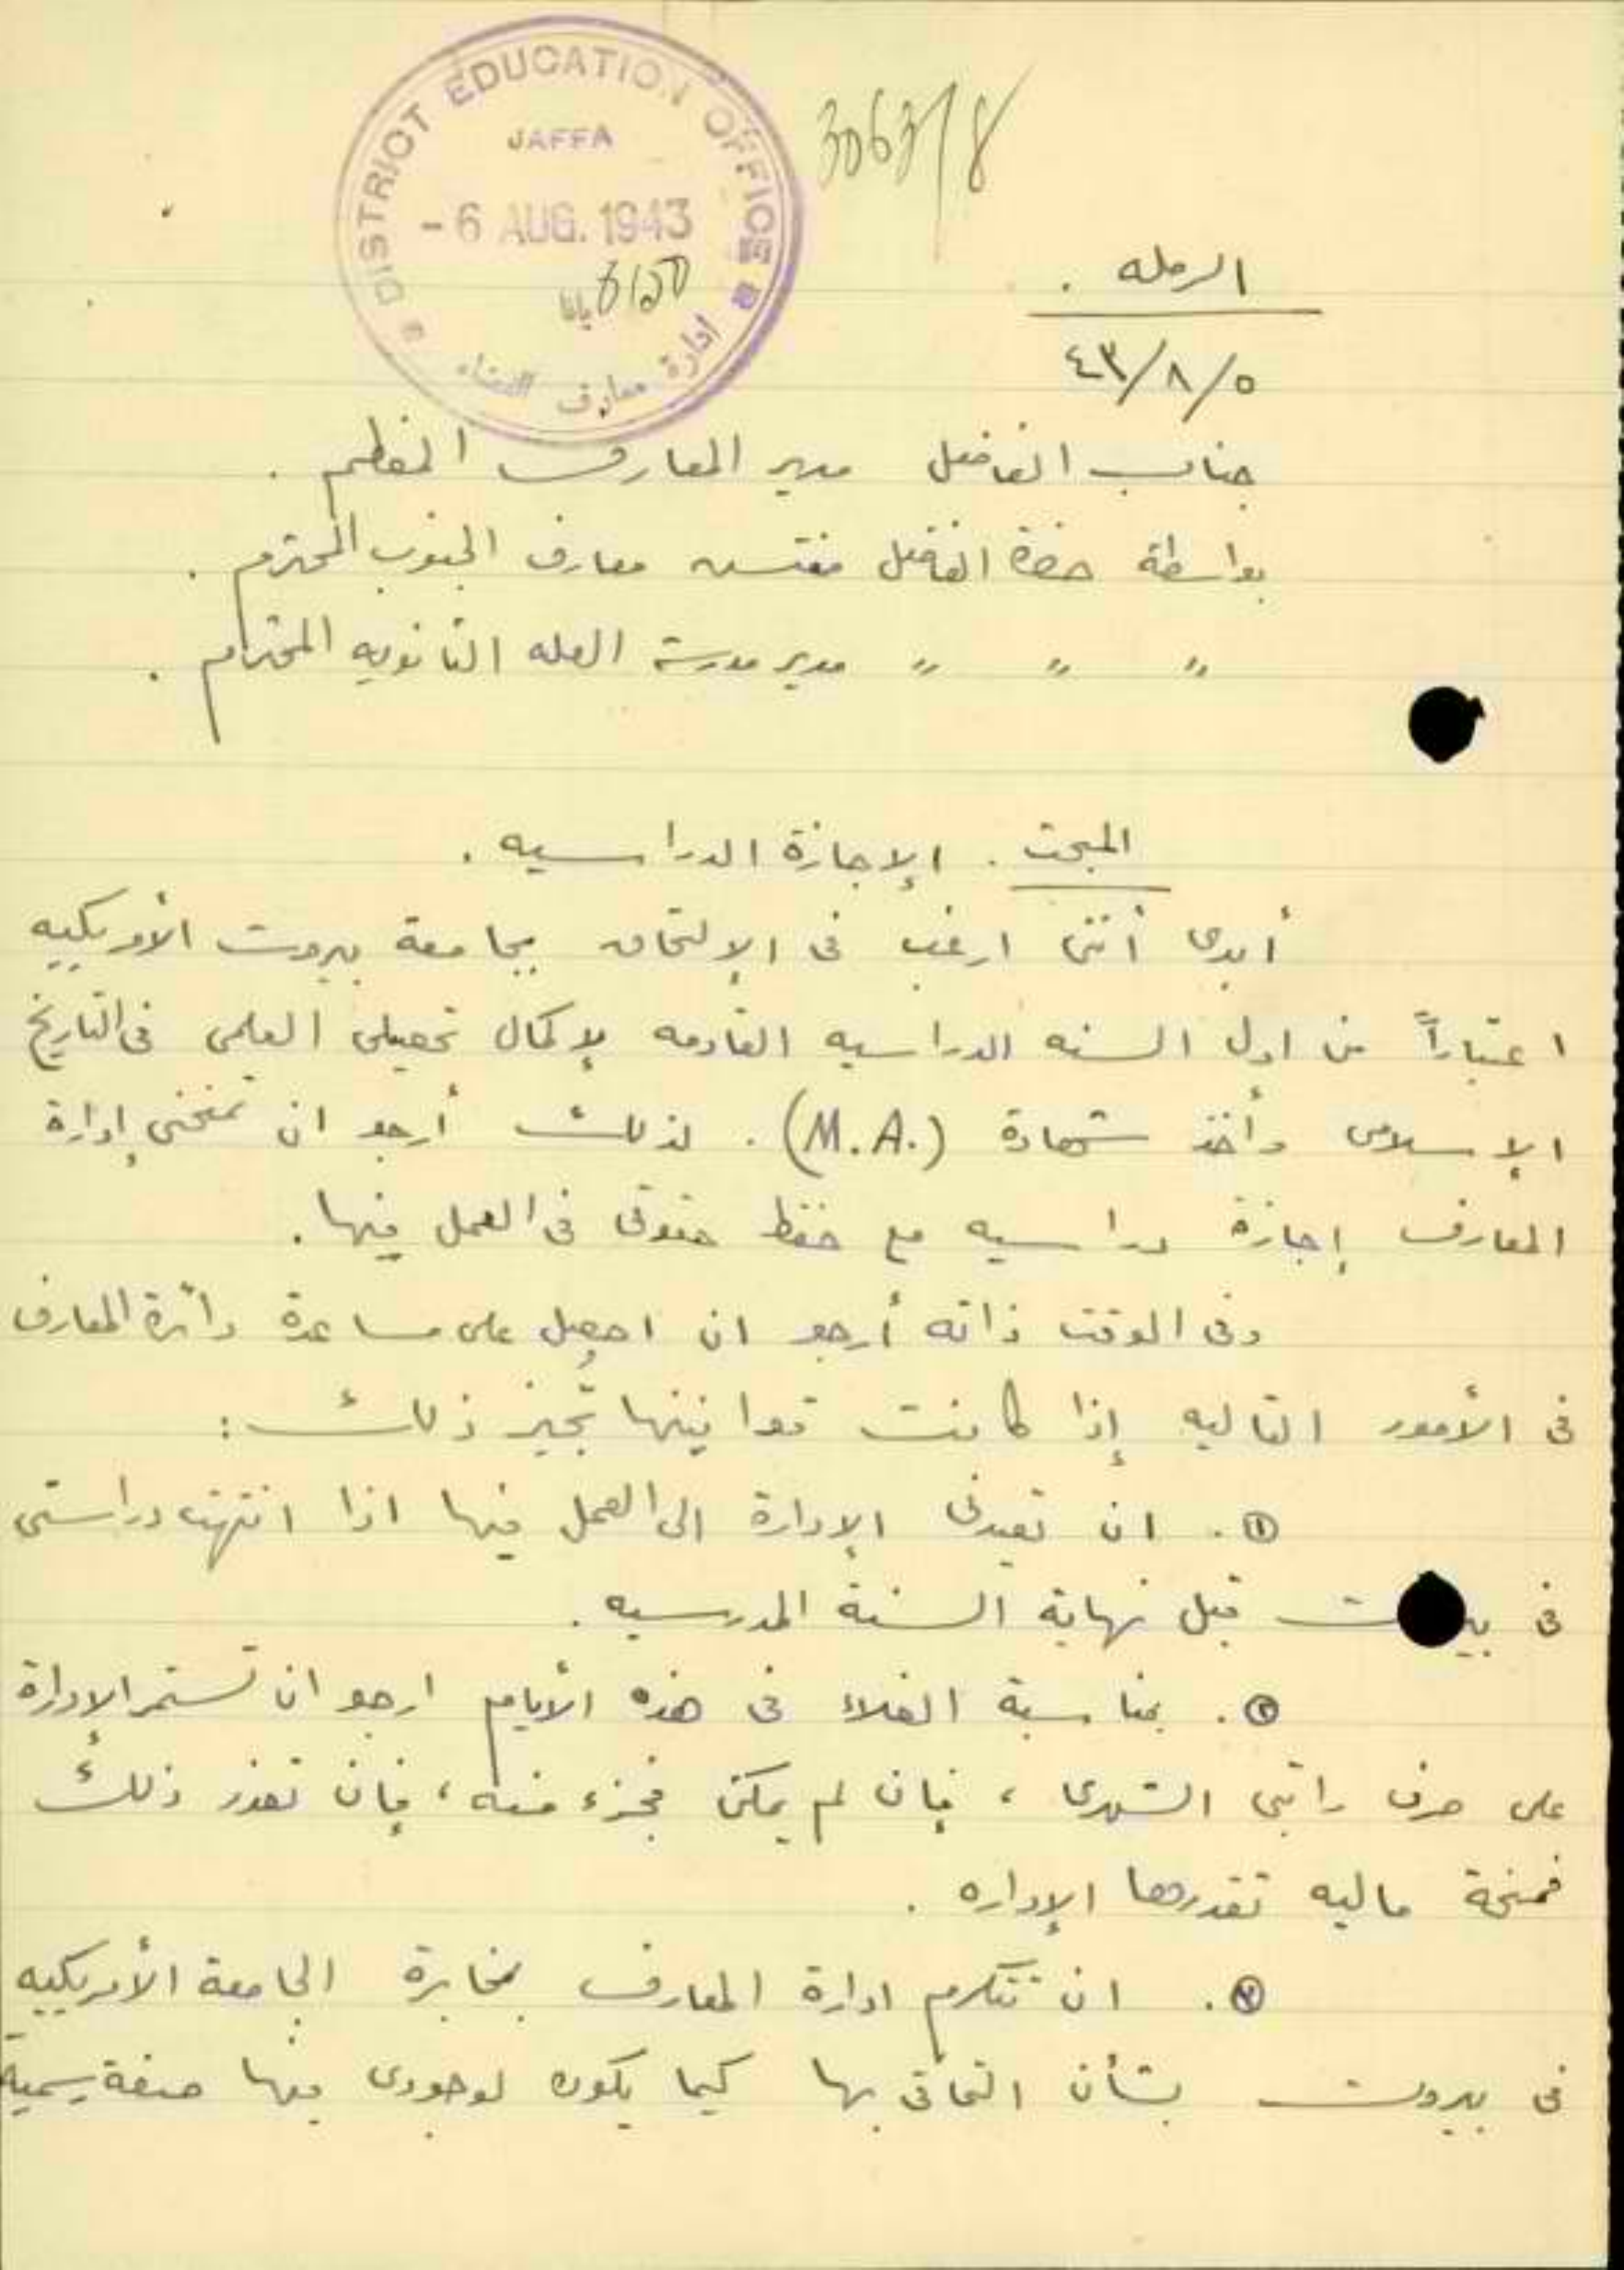 DISTRICT EDUCATION OFFICE
JAFFA
- 6 AUG. 1943
يافا
ادارة معارف اللواء
3063/8
الرمله .
٤٣/٨/٥
جناب الفاضل مدير المعارف المعظم .
بواسطة حضرة الفاضل مفتش معارف الجنوب المحترم .
" " " مدير مدرسة الرمله الثانويه المحترم .
المبحث . الإجازة الدراسيه .
أبدى أننى ارغب فى الإلتحاق بجامعة بيروت الأمريكيه
اعتباراً من اول السنه الدراسيه القادمه لإكمال تحصيلى العلمى فى التاريخ
الإسلامى وأخذ شهادة (M.A.) . لذلك أرجو ان تمنحنى إدارة
المعارف إجازة دراسيه مع حفظ حقوقى فى العمل فيها .
وفى الوقت ذاته أرجو ان احصل على مساعدة دائرة المعارف
فى الأمور التاليه إذا كانت قوانينها تُجيز ذلك :
١ . ان تعيدنى الإدارة الى العمل فيها اذا انتهت دراستى
فى بيروت قبل نهاية السنة المدرسيه .
٢ . بمناسبة الغلاء فى هذه الأيام ارجو ان تستمر الإدارة
على صرف راتبى الشهرى ، فإن لم يمكن فجزء منه ، فإن تعذر ذلك
فمنحة ماليه تقدرها الإداره .
٣ . ان تتكرم ادارة المعارف بمخابرة الجامعة الأمريكيه
فى بيروت بشأن التحاقى بها كيما يكون لوجودى فيها صفة رسمية